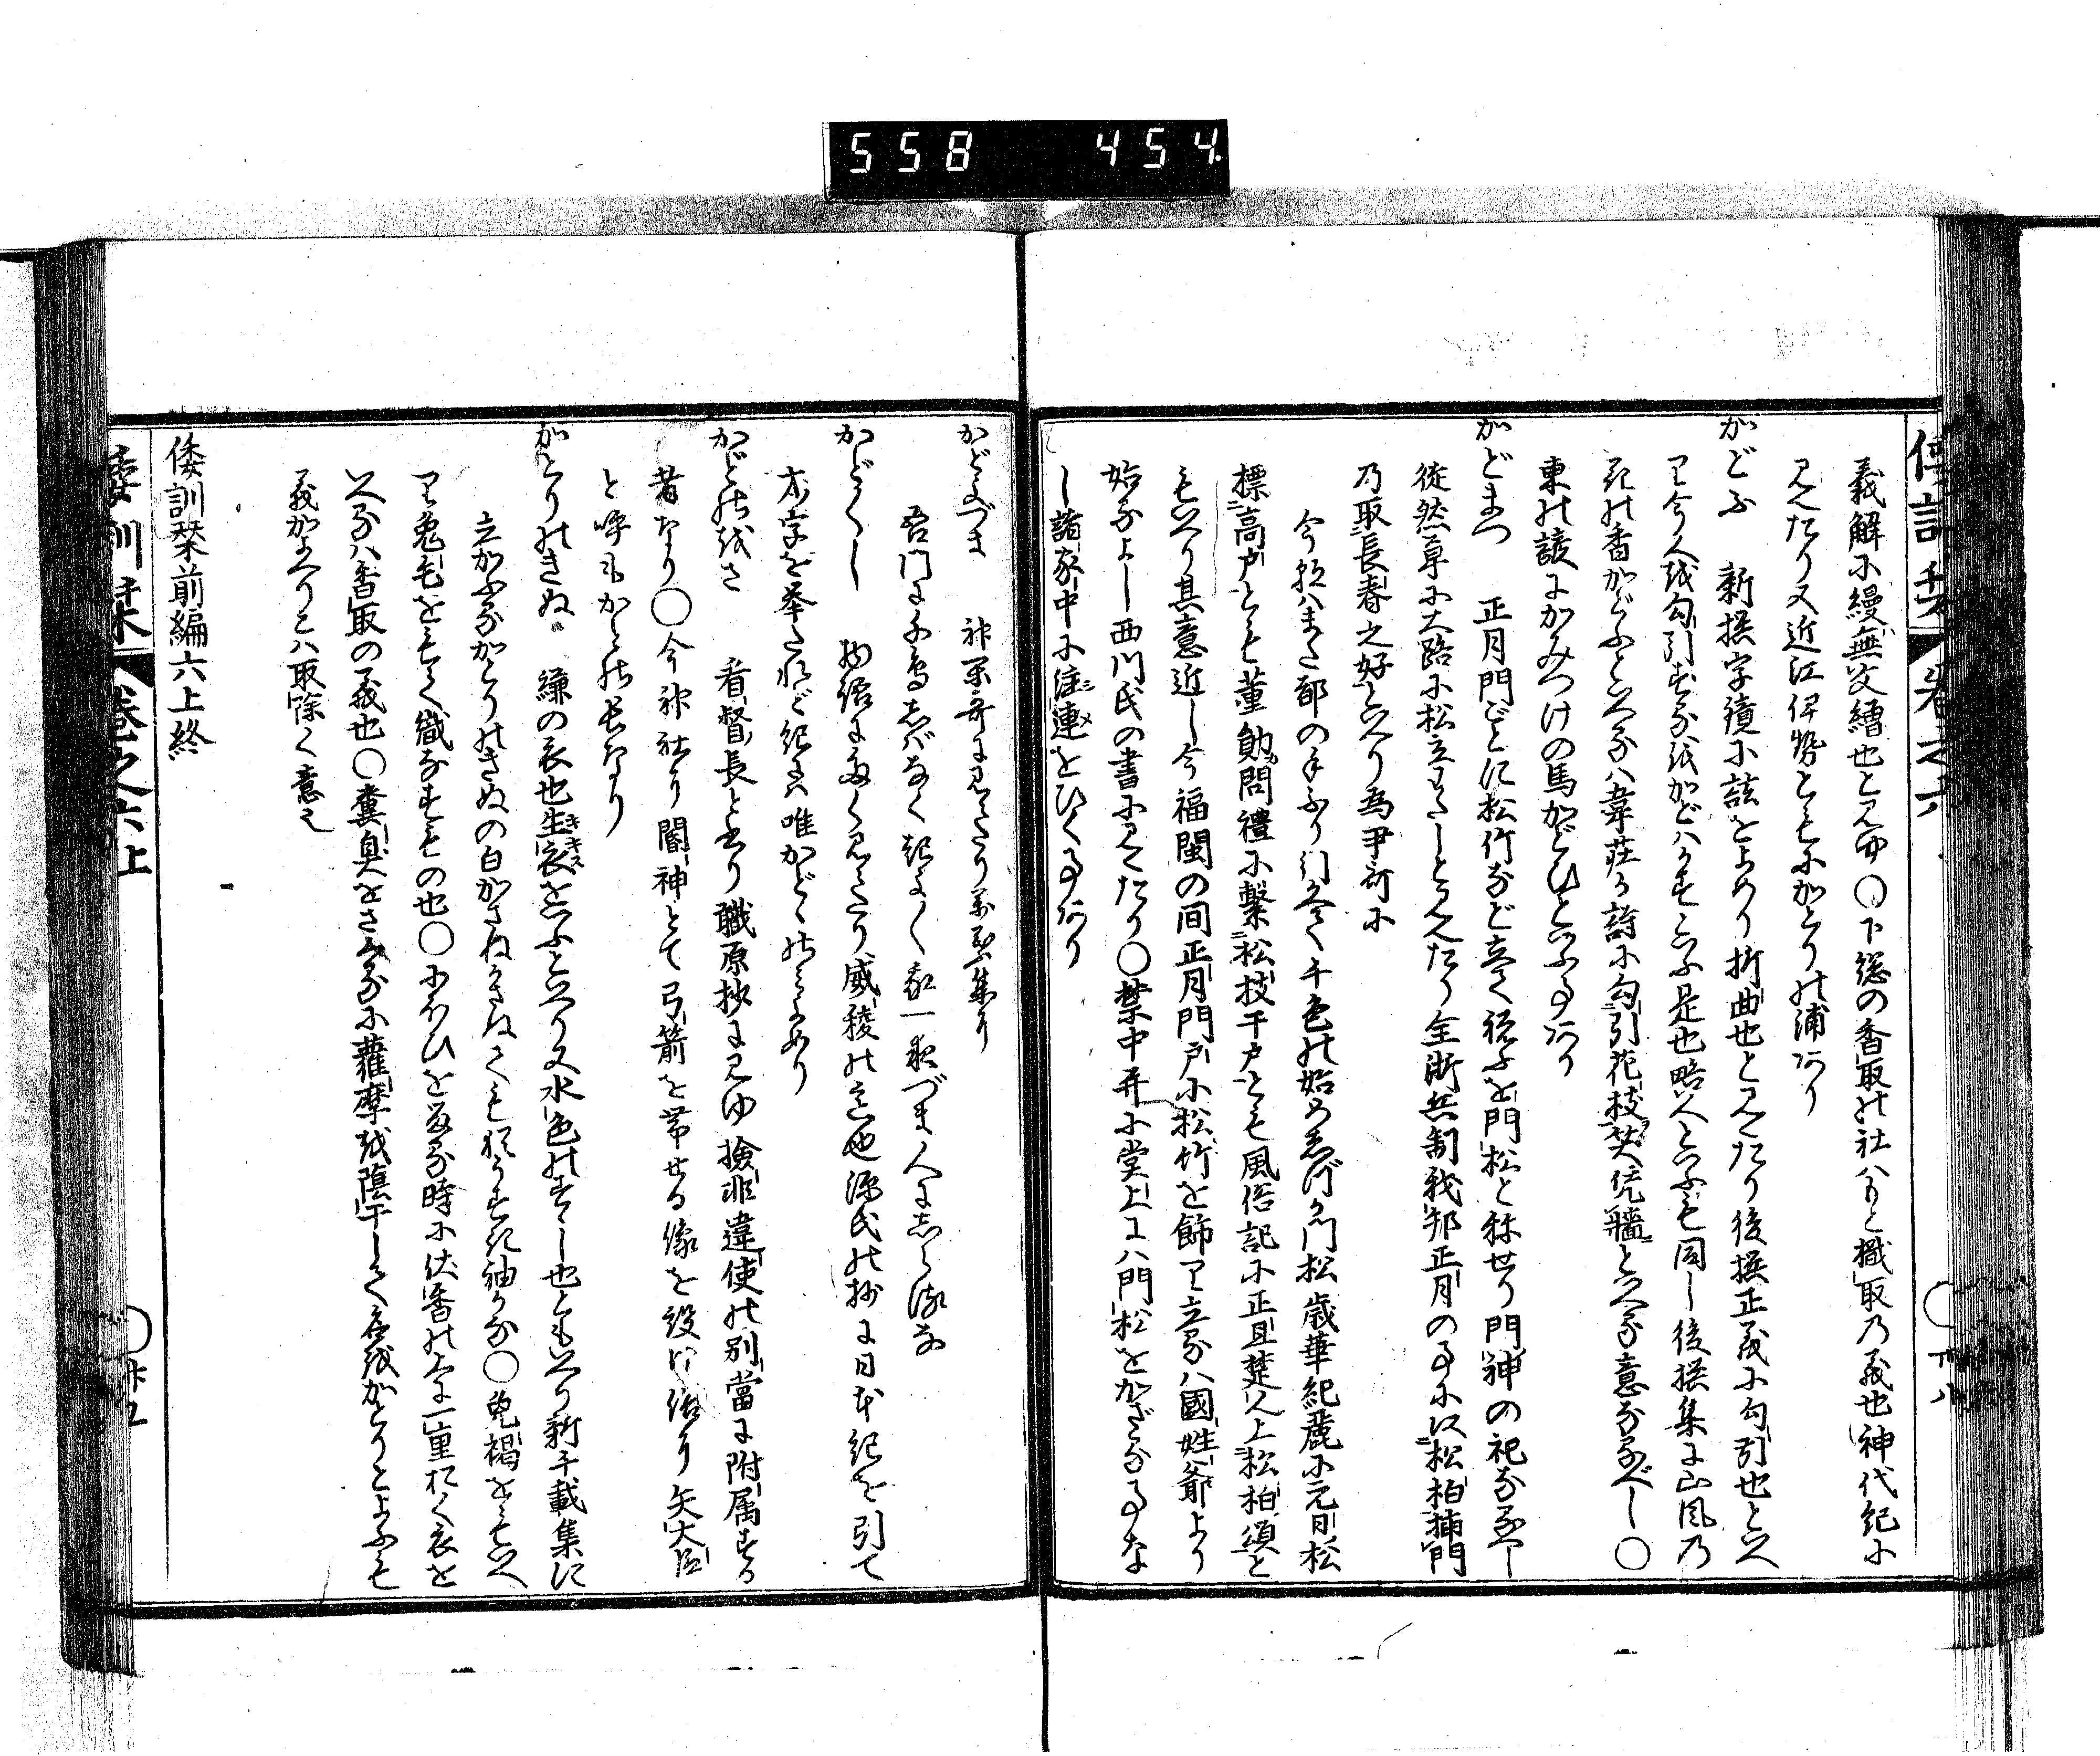 558 454
義解に縵無文繒也と見ゆ〇下総の香取の社はもと檝取乃義也神代紀に
見えたり又近江伊勢ともにかとりの浦あり
かどふ 新撰字鏡に詃をよめり折曲也と見えたり後撰正義に勾引也といへ
り今人を勾引するをかどはすといふ是也略人といふも同し後撰集に山風乃
花の香かどふといへるハ韋荘か詩に勾引花枝笑凭牆といへる意なるべし〇
東の諺にかみつけの馬かどひといふ事あり
かどまつ 正月門ごとに松竹など立て祝ふを門松と称せり門神の祀なるべし
徒然草に大路に松立わたしと見えたり全浙兵制我邦正月の事に以松柏挿門
乃取長春之好といへり為尹訶に
今朝ハまた都の手ふり引かへて千色の始めしづか門松歳華紀麗に元日松
標高戸とも董勛問禮に繋松枝于戸とも風俗記に正旦楚人上松柏頌と
もいへり其意近し今福閩の間正月門戸に松竹を飾り立るハ國姓爺より
始るよし西川氏の書に見えたり〇禁中并に堂上にハ門松をかざるなる事な
し諸家中に注連をひく事あり
かどづま 神樂哥に見えたり万葉集に
吾門に千鳥しばなく起よ〱我一夜づま人にしらるな
かど〱し 物語に多く見えたり威稜の意也源氏の抄に日本紀を引て
本字を挙たれど紀にハ唯かど〱のミよめり
かどのをさ 看督長と書り職原抄に見ゆ撿非違使の別當に附属する
者なり〇今神社に閽神とて弓箭を帯せる像を設け俗に矢大臣
と呼もかとの長なり
かとりのきぬ 縑の衣也生衣をいふといへり又水色のすゝし也ともいへり新千載集に
立かふるかとりのきぬの白かさねかさねても猶うすき袖かな〇兎褐をもいへ
り兎毛をもて織なすもの也〇にほひをする時に伏香の上に一重おく衣を
いへるハ香取の義也〇糞臭をさくるに蘿摩を蔭干して衣をかとりとよふも
義かよへりこハ取除く意也
倭訓栞前編六上終
倭訓栞 巻之六上